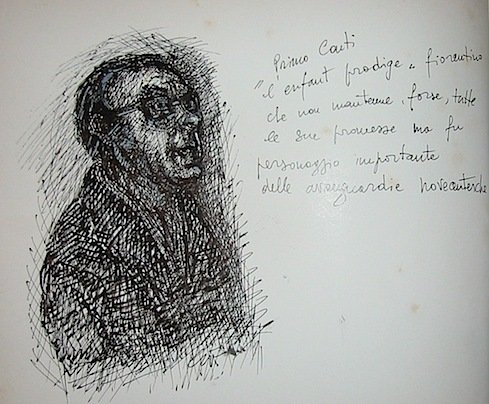 Primo Conti
"l'enfant prodige" fiorentino
che non mantenne, forse, tutte
le sue promesse ma fu
personaggio importante
delle avanguardie novecentesche